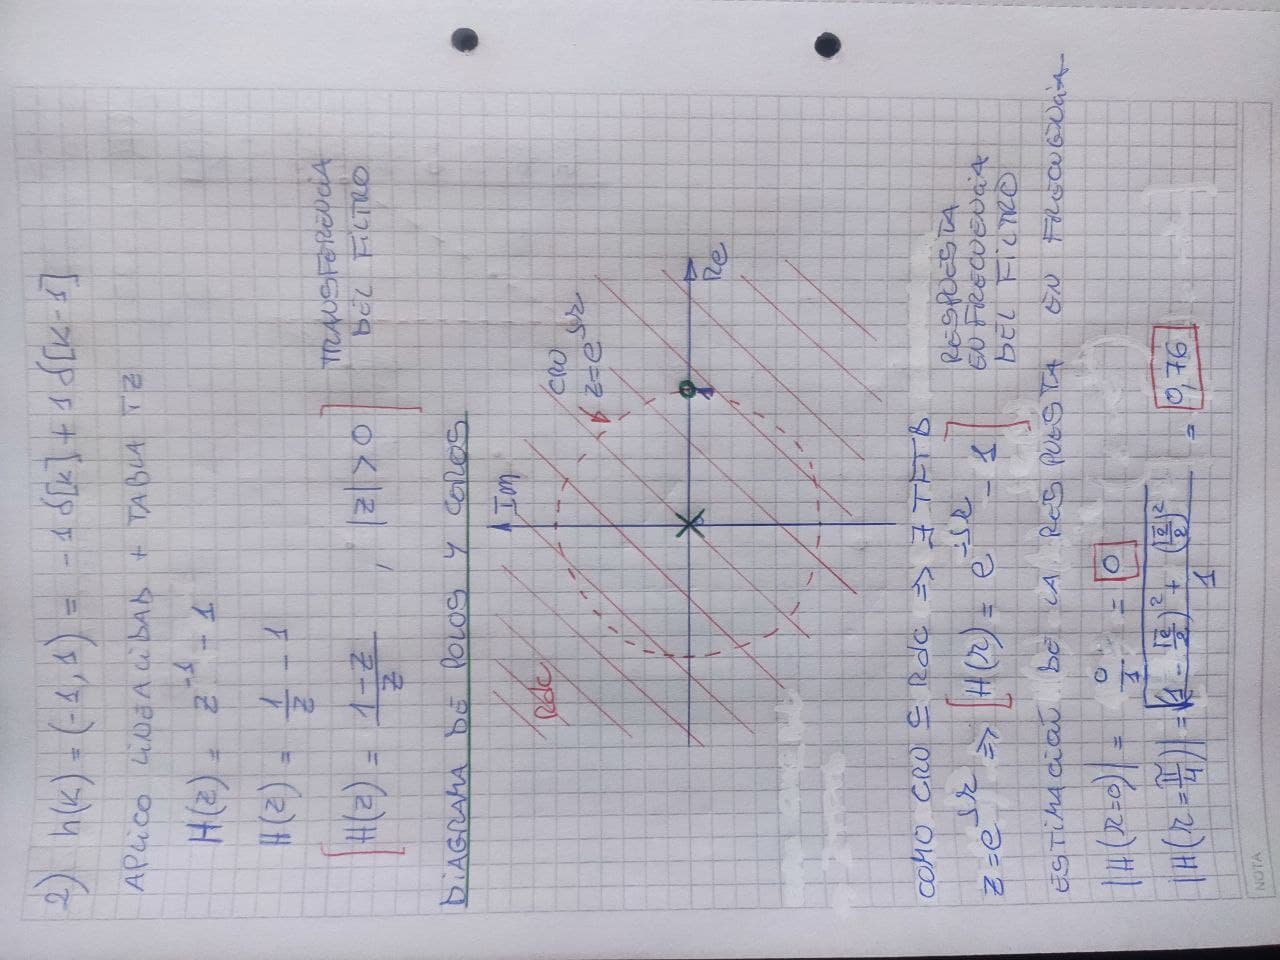 2) h(k) = (-1, 1) = -1 δ[k] + 1 δ[k-1]
APLICO LINEALIDAD + TABLA TZ
H(z) = z⁻¹ - 1
H(z) = 1/z - 1
[H(z) = (1-z)/z , |z| > 0] TRANSFERENCIA
DEL FILTRO
DIAGRAMA DE POLOS Y CEROS
Im
RdC
CRU
z=e^jΩ
1
Re
COMO CRU ⊆ RdC ⇒ ∃ TFTD
z=e^jΩ ⇒ [H(Ω) = e^-jΩ - 1] RESPUESTA
EN FRECUENCIA
DEL FILTRO
ESTIMACIÓN DE LA RESPUESTA EN FRECUENCIA
|H(Ω=0)| = 0/1 = 0
|H(Ω=π/4)| = √((1 - √2/2)² + (√2/2)²)/1 = 0,76
NOTA